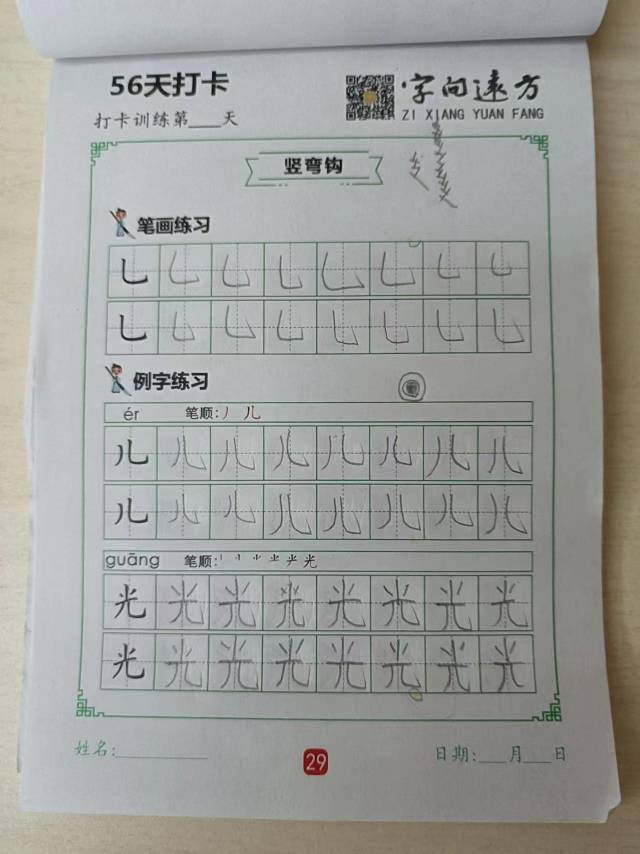 56天打卡
字向远方
打卡训练第___天
ZI XIANG YUAN FANG
竖弯钩
笔画练习
乚 乚 乚 乚 乚 乚 乚 乚
乚 乚 乚 乚 乚 乚 乚 乚
例字练习
ér 笔顺: 丿 儿
儿 儿 儿 儿 儿 儿 儿 儿
儿 儿 儿 儿 儿 儿 儿 儿
guāng 笔顺:
光 光 光 光 光 光 光 光
光 光 光 光 光 光 光 光
姓名:__________ 29 日期:___月___日